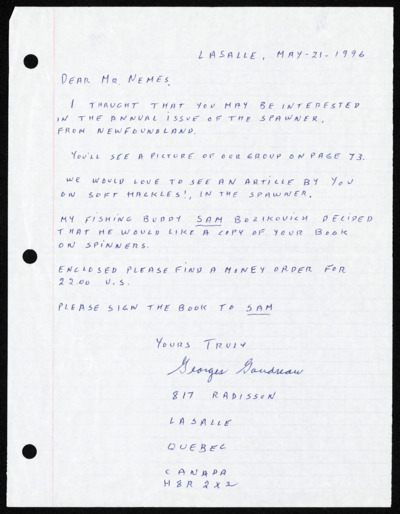 LASALLE, MAY-21-1996
DEAR MR. NEMES,
I THAUGHT THAT YOU MAY BE INTERESTED
IN THE ANNUAL ISSUE OF THE SPAWNER,
FROM NEWFOUNDLAND.
YOU'LL SEE A PICTURE OF OUR GROUP ON PAGE 73.
WE WOULD LOVE TO SEE AN ARTICLE BY YOU
ON SOFT HACKLES!, IN THE SPAWNER.
MY FISHING BUDDY SAM BOZIKOVICH DECIDED
THAT HE WOULD LIKE A COPY OF YOUR BOOK
ON SPINNERS.
ENCLOSED PLEASE FIND A MONEY ORDER FOR
22.00 U.S.
PLEASE SIGN THE BOOK TO SAM
YOURS TRULY
Georges Goudreau
817 RADISSON
LASALLE
QUEBEC
CANADA
H8R 2X2